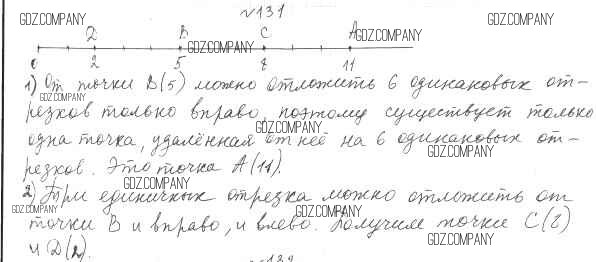 №131
GDZ.COMPANY GDZ.COMPANY GDZ.COMPANY
D B C A
GDZ.COMPANY
0 2 5 8 11
1) От точки B(5) можно отложить 6 одинаковых от-
GDZ.COMPANY
резков только вправо, поэтому существует только
GDZ.COMPANY
одна точка, удалённая от неё на 6 одинаковых от-
GDZ.COMPANY
резков. Это точка A(11).
GDZ.COMPANY
2) Три единичных отрезка можно отложить от
GDZ.COMPANY GDZ.COMPANY
точки B и вправо, и влево. Получим точки C(8)
и D(2).
GDZ.COMPANY
№132